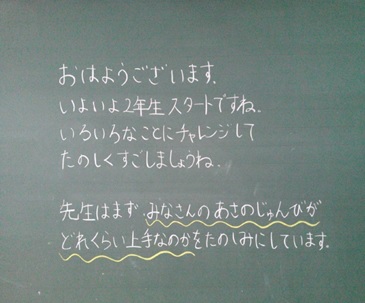 おはようございます。
いよいよ2年生スタートですね。
いろいろなことにチャレンジして
たのしくすごしましょうね。
先生はまず、みなさんのあさのじゅんびが
どれくらい上手なのかをたのしみにしています。